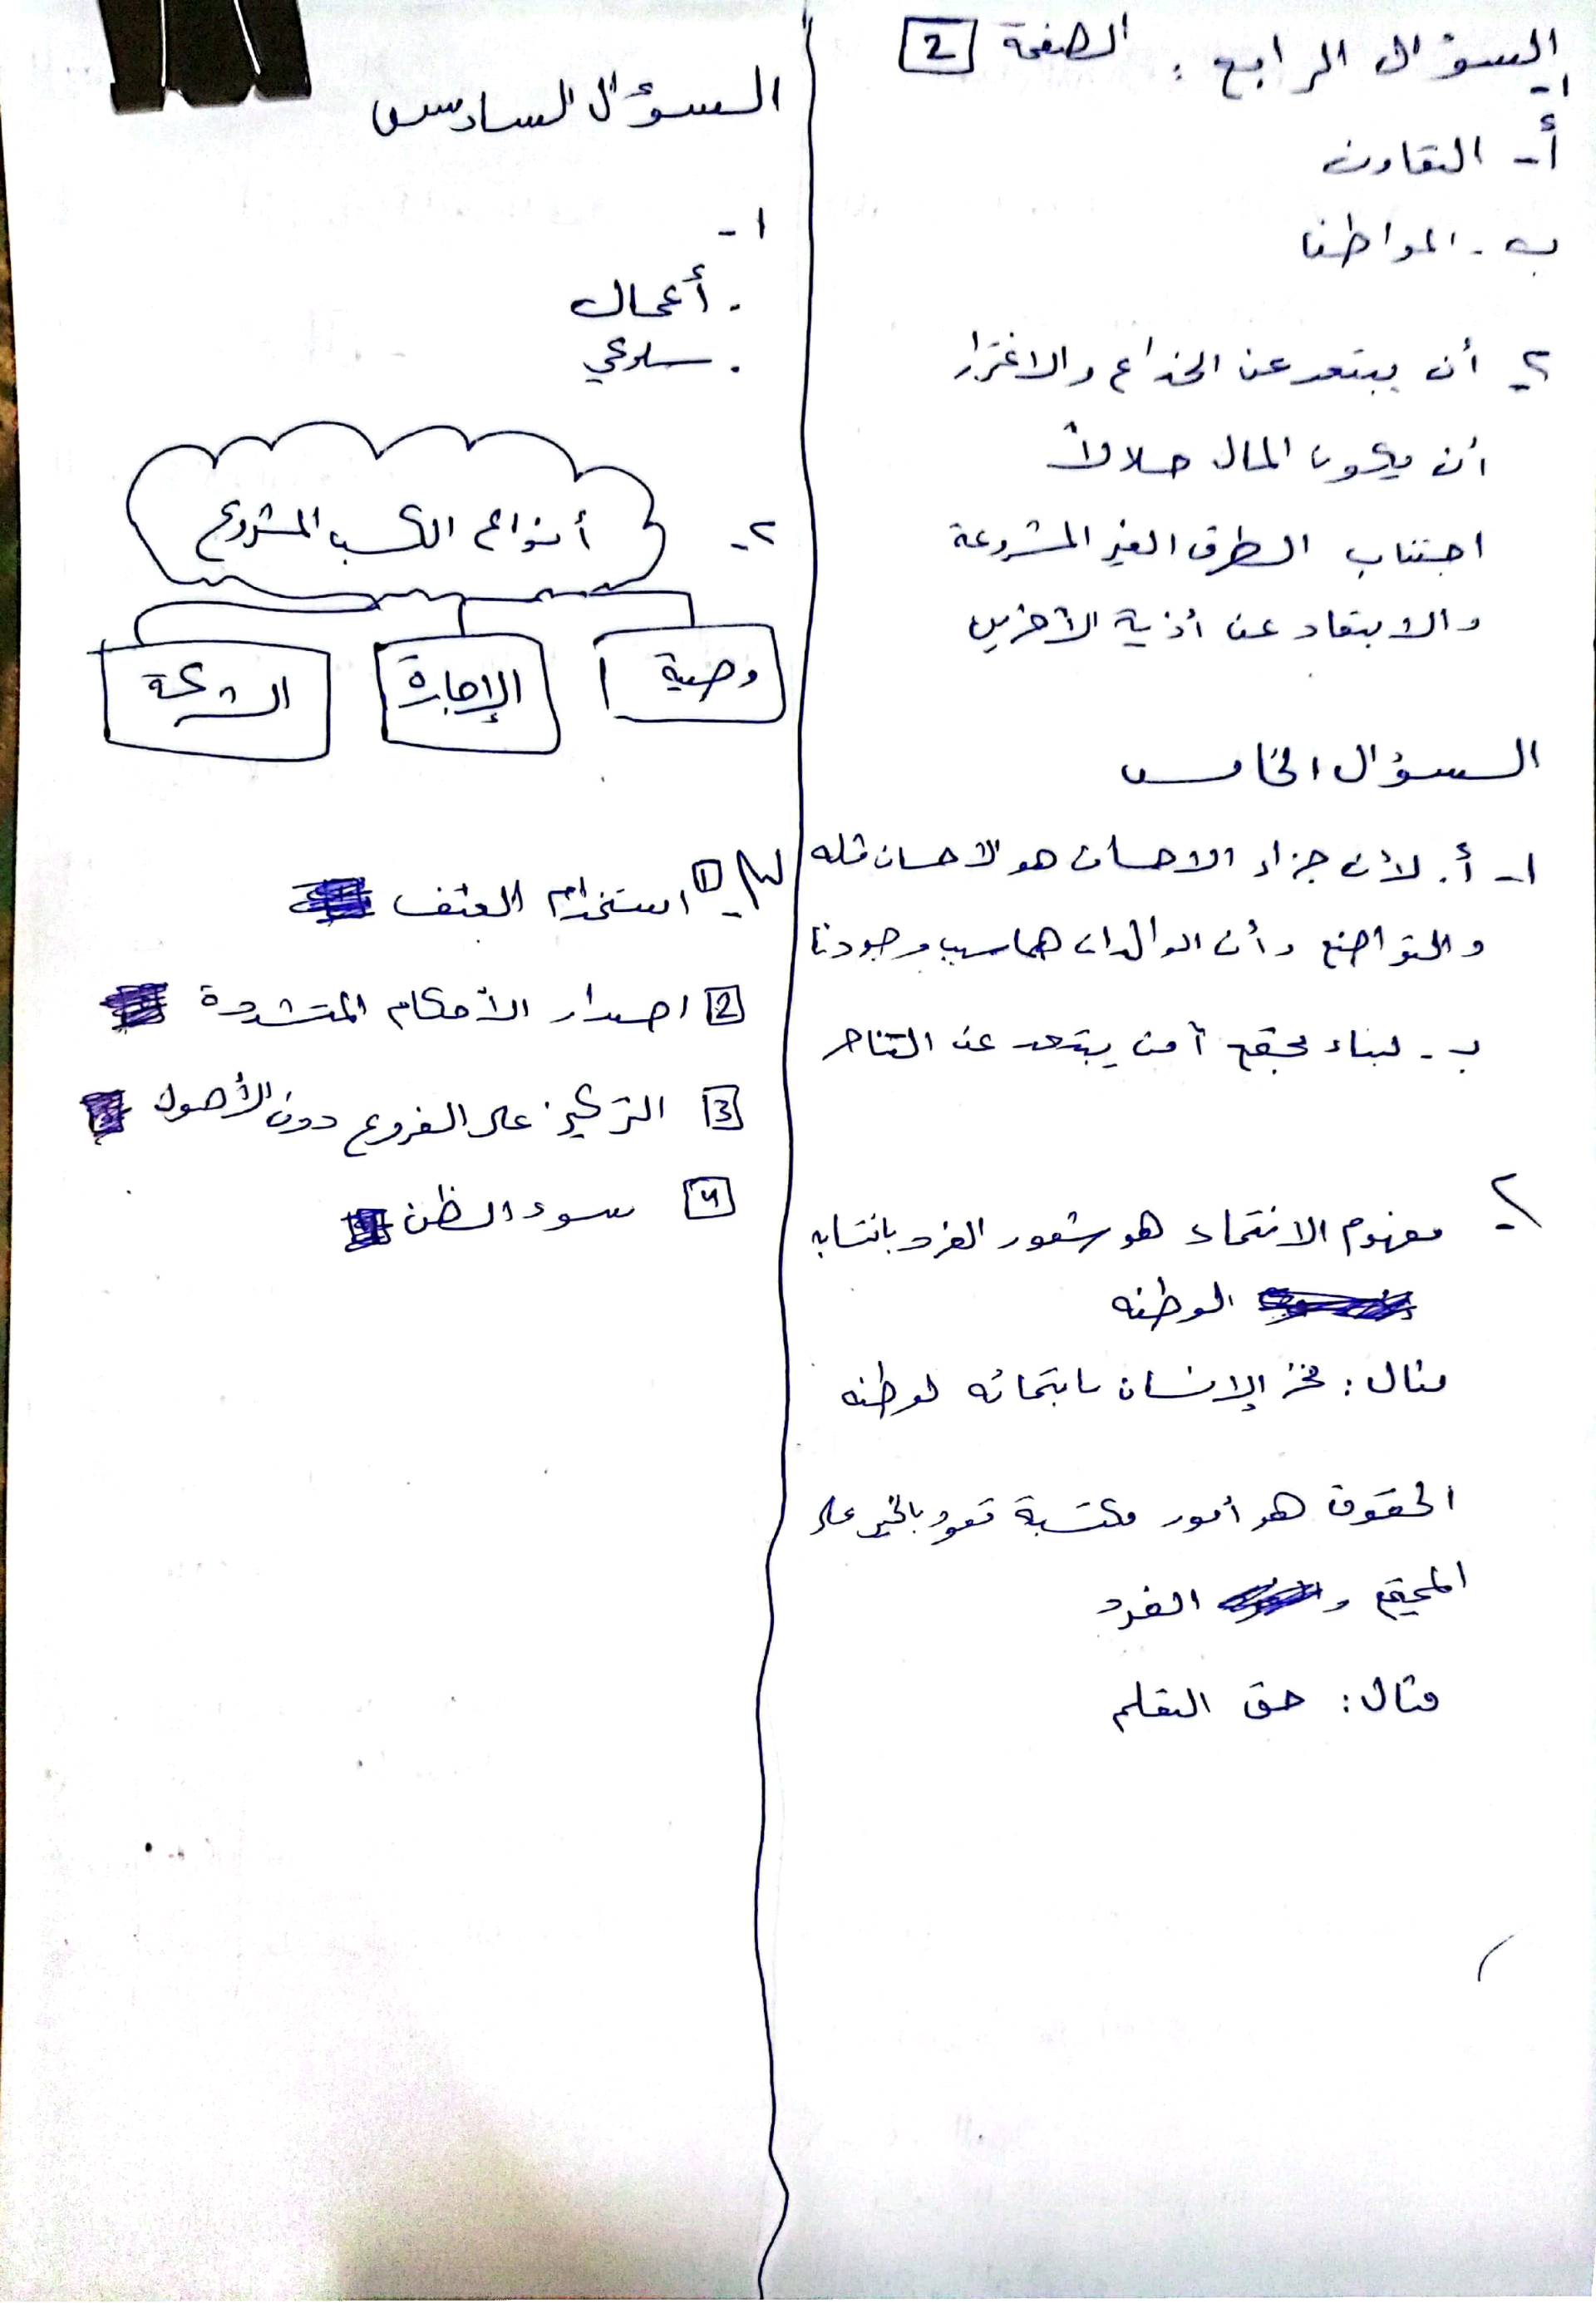 السؤال الرابع : الصفحة 2
١-
أ- التعاون
ب- المواطنا
٢- أن يبتعد عن الخداع والاغترار
أن يكون المال حلالاً
اجتناب الطرق الغير المشروعة
والابتعاد عن أذية الآخرين
السؤال الخامس
١- أ. لأن جزاء الاحسان هو الاحسان مثله
والتواضع وأن الوالدان هما سبب وجودنا
ب- لبناء مجتمع آمن يبتعد عن التناحر
٢- مفهوم الانتماء هو شعور الفرد بانتسابه
الوطنه
مثال : فخر الإنسان بانتمائه لوطنه
الحقوق هو أمور مكتسبة تعود بالخير على
المجتمع و الفرد
مثال : حق التعلم
السؤال السادس
١-
. أعمال
. سلوكي
٢- أنواع الكسب المشروع
وصية الإجارة الشركة
٣- 1 استخدام العنف
2 اصدار الأحكام المتشددة
3 التركيز على الفروع دون الأصول
4 سوء الظن